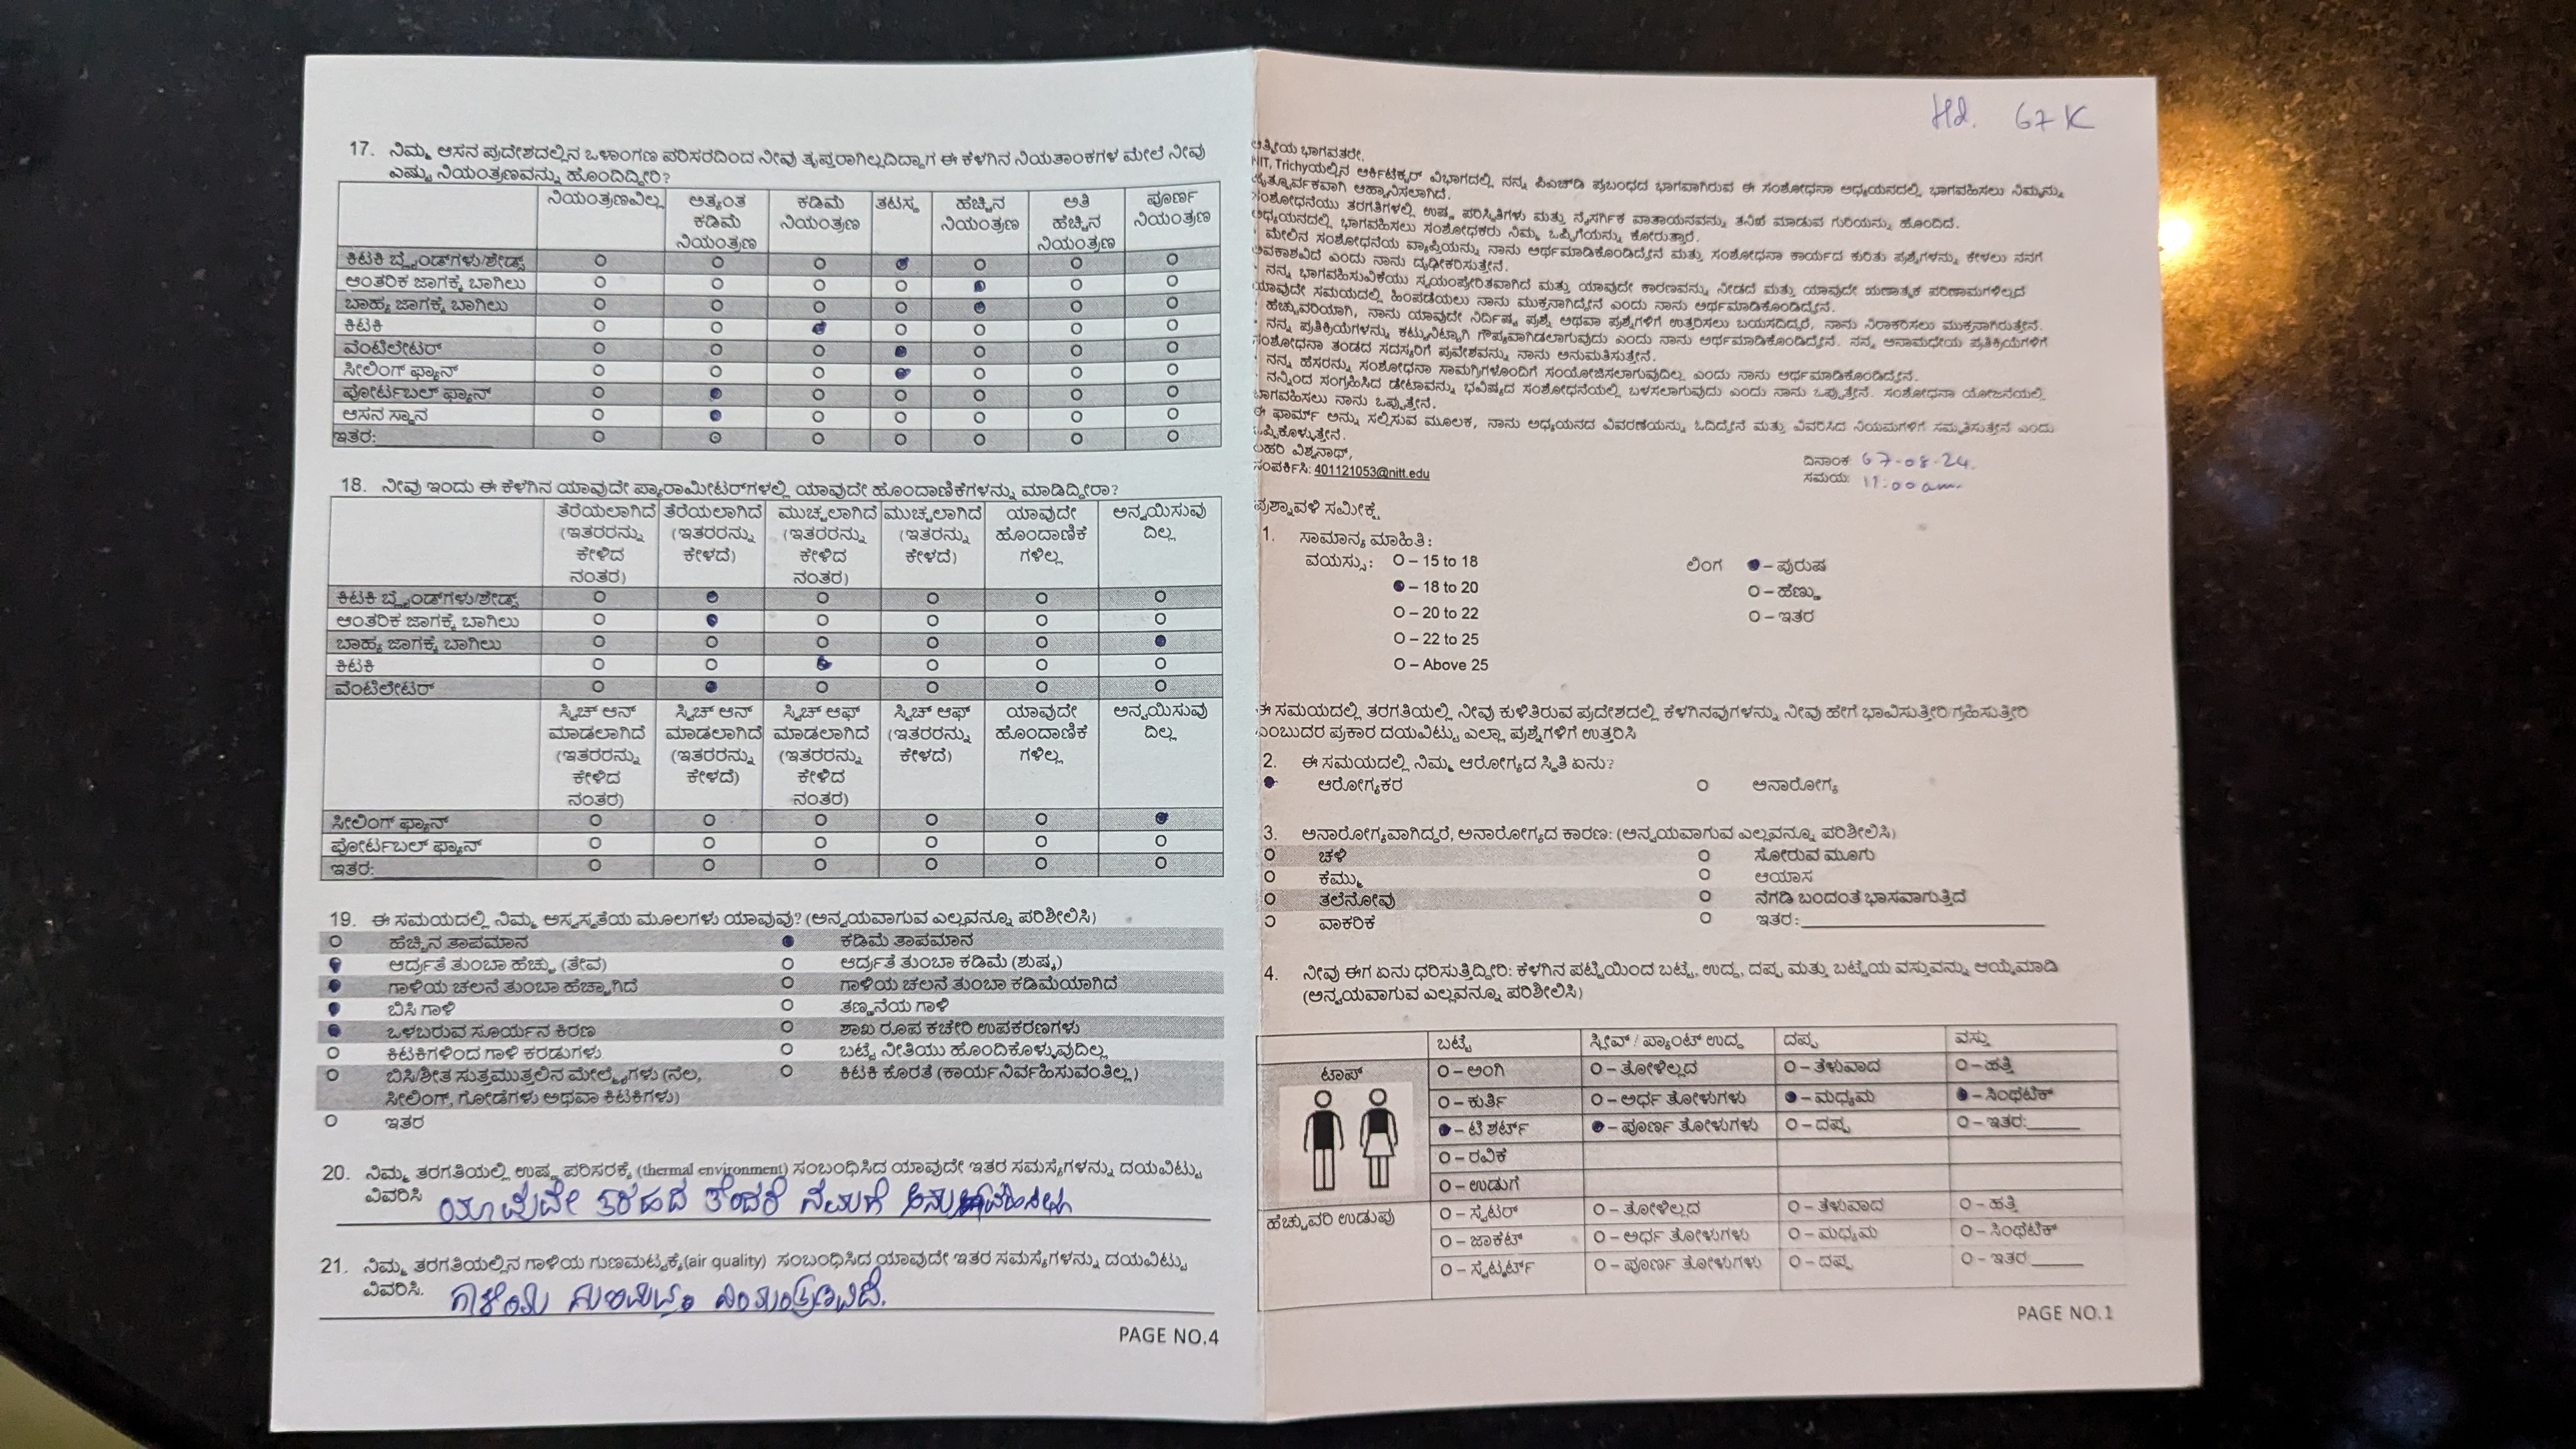 17. ನಿಮ್ಮ ಆಸನ ಪ್ರದೇಶದಲ್ಲಿನ ಒಳಾಂಗಣ ಪರಿಸರದಿಂದ ನೀವು ತೃಪ್ತರಾಗಿಲ್ಲದಿದ್ದಾಗ ಈ ಕೆಳಗಿನ ನಿಯತಾಂಕಗಳ ಮೇಲೆ ನೀವು
ಎಷ್ಟು ನಿಯಂತ್ರಣವನ್ನು ಹೊಂದಿದ್ದೀರಿ?
ನಿಯಂತ್ರಣವಿಲ್ಲ ಅತ್ಯಂತ ಕಡಿಮೆ ನಿಯಂತ್ರಣ ಕಡಿಮೆ ನಿಯಂತ್ರಣ ತಟಸ್ಥ ಹೆಚ್ಚಿನ ನಿಯಂತ್ರಣ ಅತಿ ಹೆಚ್ಚಿನ ನಿಯಂತ್ರಣ ಪೂರ್ಣ ನಿಯಂತ್ರಣ
ಕಿಟಕಿ ಬ್ಲೈಂಡ್‌ಗಳು/ಶೇಡ್ಸ್
ಆಂತರಿಕ ಜಾಗಕ್ಕೆ ಬಾಗಿಲು
ಬಾಹ್ಯ ಜಾಗಕ್ಕೆ ಬಾಗಿಲು
ಕಿಟಕಿ
ವೆಂಟಿಲೇಟರ್
ಸೀಲಿಂಗ್ ಫ್ಯಾನ್
ಪೋರ್ಟಬಲ್ ಫ್ಯಾನ್
ಆಸನ ಸ್ಥಾನ
ಇತರ:
18. ನೀವು ಇಂದು ಈ ಕೆಳಗಿನ ಯಾವುದೇ ಪ್ಯಾರಾಮೀಟರ್‌ಗಳಲ್ಲಿ ಯಾವುದೇ ಹೊಂದಾಣಿಕೆಗಳನ್ನು ಮಾಡಿದ್ದೀರಾ?
ತೆರೆಯಲಾಗಿದೆ (ಇತರರನ್ನು ಕೇಳಿದ ನಂತರ) ತೆರೆಯಲಾಗಿದೆ (ಇತರರನ್ನು ಕೇಳದೆ) ಮುಚ್ಚಲಾಗಿದೆ (ಇತರರನ್ನು ಕೇಳಿದ ನಂತರ) ಮುಚ್ಚಲಾಗಿದೆ (ಇತರರನ್ನು ಕೇಳದೆ) ಯಾವುದೇ ಹೊಂದಾಣಿಕೆ ಗಳಿಲ್ಲ ಅನ್ವಯಿಸುವು ದಿಲ್ಲ
ಕಿಟಕಿ ಬ್ಲೈಂಡ್‌ಗಳು/ಶೇಡ್ಸ್
ಆಂತರಿಕ ಜಾಗಕ್ಕೆ ಬಾಗಿಲು
ಬಾಹ್ಯ ಜಾಗಕ್ಕೆ ಬಾಗಿಲು
ಕಿಟಕಿ
ವೆಂಟಿಲೇಟರ್
ಸ್ವಿಚ್ ಆನ್ ಮಾಡಲಾಗಿದೆ (ಇತರರನ್ನು ಕೇಳಿದ ನಂತರ) ಸ್ವಿಚ್ ಆನ್ ಮಾಡಲಾಗಿದೆ (ಇತರರನ್ನು ಕೇಳದೆ) ಸ್ವಿಚ್ ಆಫ್ ಮಾಡಲಾಗಿದೆ (ಇತರರನ್ನು ಕೇಳಿದ ನಂತರ) ಸ್ವಿಚ್ ಆಫ್ (ಇತರರನ್ನು ಕೇಳದೆ) ಯಾವುದೇ ಹೊಂದಾಣಿಕೆ ಗಳಿಲ್ಲ ಅನ್ವಯಿಸುವು ದಿಲ್ಲ
ಸೀಲಿಂಗ್ ಫ್ಯಾನ್
ಪೋರ್ಟಬಲ್ ಫ್ಯಾನ್
ಇತರ:
19. ಈ ಸಮಯದಲ್ಲಿ ನಿಮ್ಮ ಅಸ್ವಸ್ಥತೆಯ ಮೂಲಗಳು ಯಾವುವು? (ಅನ್ವಯವಾಗುವ ಎಲ್ಲವನ್ನೂ ಪರಿಶೀಲಿಸಿ)
ಹೆಚ್ಚಿನ ತಾಪಮಾನ ಕಡಿಮೆ ತಾಪಮಾನ
ಆರ್ದ್ರತೆ ತುಂಬಾ ಹೆಚ್ಚು (ತೇವ) ಆರ್ದ್ರತೆ ತುಂಬಾ ಕಡಿಮೆ (ಶುಷ್ಕ)
ಗಾಳಿಯ ಚಲನೆ ತುಂಬಾ ಹೆಚ್ಚಾಗಿದೆ ಗಾಳಿಯ ಚಲನೆ ತುಂಬಾ ಕಡಿಮೆಯಾಗಿದೆ
ಬಿಸಿ ಗಾಳಿ ತಣ್ಣನೆಯ ಗಾಳಿ
ಒಳಬರುವ ಸೂರ್ಯನ ಕಿರಣ ಶಾಖ ರೂಪ ಕಚೇರಿ ಉಪಕರಣಗಳು
ಕಿಟಕಿಗಳಿಂದ ಗಾಳಿ ಕರಡುಗಳು ಬಟ್ಟೆ ನೀತಿಯು ಹೊಂದಿಕೊಳ್ಳುವುದಿಲ್ಲ
ಬಿಸಿ/ಶೀತ ಸುತ್ತಮುತ್ತಲಿನ ಮೇಲ್ಮೈಗಳು (ನೆಲ, ಕಿಟಕಿ ಕೊರತೆ (ಕಾರ್ಯನಿರ್ವಹಿಸುವಂತಿಲ್ಲ)
ಸೀಲಿಂಗ್, ಗೋಡೆಗಳು ಅಥವಾ ಕಿಟಕಿಗಳು)
ಇತರ
20. ನಿಮ್ಮ ತರಗತಿಯಲ್ಲಿ ಉಷ್ಣ ಪರಿಸರಕ್ಕೆ (thermal environment) ಸಂಬಂಧಿಸಿದ ಯಾವುದೇ ಇತರ ಸಮಸ್ಯೆಗಳನ್ನು ದಯವಿಟ್ಟು
ವಿವರಿಸಿ ಯಾವುದೇ ತರಹದ ತೊಂದರೆ ನಮಗೆ
21. ನಿಮ್ಮ ತರಗತಿಯಲ್ಲಿನ ಗಾಳಿಯ ಗುಣಮಟ್ಟಕ್ಕೆ(air quality) ಸಂಬಂಧಿಸಿದ ಯಾವುದೇ ಇತರ ಸಮಸ್ಯೆಗಳನ್ನು ದಯವಿಟ್ಟು
ವಿವರಿಸಿ. ಗಾಳಿಯ ಗುಣಮಟ್ಟ ನಿಯಂತ್ರಣವಿದೆ.
PAGE NO.4
Hd. 67 K
ಆತ್ಮೀಯ ಭಾಗವತರೇ,
NIT, Trichyಯಲ್ಲಿನ ಆರ್ಕಿಟೆಕ್ಚರ್ ವಿಭಾಗದಲ್ಲಿ ನನ್ನ ಪಿಎಚ್‌ಡಿ ಪ್ರಬಂಧದ ಭಾಗವಾಗಿರುವ ಈ ಸಂಶೋಧನಾ ಅಧ್ಯಯನದಲ್ಲಿ ಭಾಗವಹಿಸಲು ನಿಮ್ಮನ್ನು
ಹೃತ್ಪೂರ್ವಕವಾಗಿ ಆಹ್ವಾನಿಸಲಾಗಿದೆ.
ಸಂಶೋಧನೆಯು ತರಗತಿಗಳಲ್ಲಿ ಉಷ್ಣ ಪರಿಸ್ಥಿತಿಗಳು ಮತ್ತು ನೈಸರ್ಗಿಕ ವಾತಾಯನವನ್ನು ತನಿಖೆ ಮಾಡುವ ಗುರಿಯನ್ನು ಹೊಂದಿದೆ.
ಅಧ್ಯಯನದಲ್ಲಿ ಭಾಗವಹಿಸಲು ಸಂಶೋಧಕರು ನಿಮ್ಮ ಒಪ್ಪಿಗೆಯನ್ನು ಕೋರುತ್ತಾರೆ.
· ಮೇಲಿನ ಸಂಶೋಧನೆಯ ವ್ಯಾಪ್ತಿಯನ್ನು ನಾನು ಅರ್ಥಮಾಡಿಕೊಂಡಿದ್ದೇನೆ ಮತ್ತು ಸಂಶೋಧನಾ ಕಾರ್ಯದ ಕುರಿತು ಪ್ರಶ್ನೆಗಳನ್ನು ಕೇಳಲು ನನಗೆ
ಅವಕಾಶವಿದೆ ಎಂದು ನಾನು ದೃಢೀಕರಿಸುತ್ತೇನೆ.
· ನನ್ನ ಭಾಗವಹಿಸುವಿಕೆಯು ಸ್ವಯಂಪ್ರೇರಿತವಾಗಿದೆ ಮತ್ತು ಯಾವುದೇ ಕಾರಣವನ್ನು ನೀಡದೆ ಮತ್ತು ಯಾವುದೇ ಋಣಾತ್ಮಕ ಪರಿಣಾಮಗಳಿಲ್ಲದೆ
ಯಾವುದೇ ಸಮಯದಲ್ಲಿ ಹಿಂಪಡೆಯಲು ನಾನು ಮುಕ್ತನಾಗಿದ್ದೇನೆ ಎಂದು ನಾನು ಅರ್ಥಮಾಡಿಕೊಂಡಿದ್ದೇನೆ.
· ಹೆಚ್ಚುವರಿಯಾಗಿ, ನಾನು ಯಾವುದೇ ನಿರ್ದಿಷ್ಟ ಪ್ರಶ್ನೆ ಅಥವಾ ಪ್ರಶ್ನೆಗಳಿಗೆ ಉತ್ತರಿಸಲು ಬಯಸದಿದ್ದರೆ, ನಾನು ನಿರಾಕರಿಸಲು ಮುಕ್ತನಾಗಿರುತ್ತೇನೆ.
· ನನ್ನ ಪ್ರತಿಕ್ರಿಯೆಗಳನ್ನು ಕಟ್ಟುನಿಟ್ಟಾಗಿ ಗೌಪ್ಯವಾಗಿಡಲಾಗುವುದು ಎಂದು ನಾನು ಅರ್ಥಮಾಡಿಕೊಂಡಿದ್ದೇನೆ. ನನ್ನ ಅನಾಮಧೇಯ ಪ್ರತಿಕ್ರಿಯೆಗಳಿಗೆ
ಸಂಶೋಧನಾ ತಂಡದ ಸದಸ್ಯರಿಗೆ ಪ್ರವೇಶವನ್ನು ನಾನು ಅನುಮತಿಸುತ್ತೇನೆ.
· ನನ್ನ ಹೆಸರನ್ನು ಸಂಶೋಧನಾ ಸಾಮಗ್ರಿಗಳೊಂದಿಗೆ ಸಂಯೋಜಿಸಲಾಗುವುದಿಲ್ಲ ಎಂದು ನಾನು ಅರ್ಥಮಾಡಿಕೊಂಡಿದ್ದೇನೆ.
· ನನ್ನಿಂದ ಸಂಗ್ರಹಿಸಿದ ಡೇಟಾವನ್ನು ಭವಿಷ್ಯದ ಸಂಶೋಧನೆಯಲ್ಲಿ ಬಳಸಲಾಗುವುದು ಎಂದು ನಾನು ಒಪ್ಪುತ್ತೇನೆ. ಸಂಶೋಧನಾ ಯೋಜನೆಯಲ್ಲಿ
ಭಾಗವಹಿಸಲು ನಾನು ಒಪ್ಪುತ್ತೇನೆ.
ಈ ಫಾರ್ಮ್ ಅನ್ನು ಸಲ್ಲಿಸುವ ಮೂಲಕ, ನಾನು ಅಧ್ಯಯನದ ವಿವರಣೆಯನ್ನು ಓದಿದ್ದೇನೆ ಮತ್ತು ವಿವರಿಸಿದ ನಿಯಮಗಳಿಗೆ ಸಮ್ಮತಿಸುತ್ತೇನೆ ಎಂದು
ಒಪ್ಪಿಕೊಳ್ಳುತ್ತೇನೆ.
ಲಹರಿ ವಿಶ್ವನಾಥ್,
ಸಂಪರ್ಕಿಸಿ: 401121053@nitt.edu
ದಿನಾಂಕ: 67-08-24.
ಸಮಯ: 11:00 am.
ಪ್ರಶ್ನಾವಳಿ ಸಮೀಕ್ಷೆ
1. ಸಾಮಾನ್ಯ ಮಾಹಿತಿ:
ವಯಸ್ಸು: O – 15 to 18 ಲಿಂಗ – ಪುರುಷ
– 18 to 20 O – ಹೆಣ್ಣು
O – 20 to 22 O – ಇತರ
O – 22 to 25
O – Above 25
ಈ ಸಮಯದಲ್ಲಿ ತರಗತಿಯಲ್ಲಿ ನೀವು ಕುಳಿತಿರುವ ಪ್ರದೇಶದಲ್ಲಿ ಕೆಳಗಿನವುಗಳನ್ನು ನೀವು ಹೇಗೆ ಭಾವಿಸುತ್ತೀರಿ/ಗ್ರಹಿಸುತ್ತೀರಿ
ಎಂಬುದರ ಪ್ರಕಾರ ದಯವಿಟ್ಟು ಎಲ್ಲಾ ಪ್ರಶ್ನೆಗಳಿಗೆ ಉತ್ತರಿಸಿ
2. ಈ ಸಮಯದಲ್ಲಿ ನಿಮ್ಮ ಆರೋಗ್ಯದ ಸ್ಥಿತಿ ಏನು?
ಆರೋಗ್ಯಕರ ಅನಾರೋಗ್ಯ
3. ಅನಾರೋಗ್ಯವಾಗಿದ್ದರೆ, ಅನಾರೋಗ್ಯದ ಕಾರಣ: (ಅನ್ವಯವಾಗುವ ಎಲ್ಲವನ್ನೂ ಪರಿಶೀಲಿಸಿ)
ಚಳಿ ಸೋರುವ ಮೂಗು
ಕೆಮ್ಮು ಆಯಾಸ
ತಲೆನೋವು ನೆಗಡಿ ಬಂದಂತೆ ಭಾಸವಾಗುತ್ತಿದೆ
ವಾಕರಿಕೆ ಇತರ:
4. ನೀವು ಈಗ ಏನು ಧರಿಸುತ್ತಿದ್ದೀರಿ: ಕೆಳಗಿನ ಪಟ್ಟಿಯಿಂದ ಬಟ್ಟೆ, ಉದ್ದ, ದಪ್ಪ ಮತ್ತು ಬಟ್ಟೆಯ ವಸ್ತುವನ್ನು ಆಯ್ಕೆಮಾಡಿ
(ಅನ್ವಯವಾಗುವ ಎಲ್ಲವನ್ನೂ ಪರಿಶೀಲಿಸಿ)
ಬಟ್ಟೆ ಸ್ಲೀವ್ / ಪ್ಯಾಂಟ್ ಉದ್ದ ದಪ್ಪ ವಸ್ತು
ಟಾಪ್ O – ಅಂಗಿ O – ತೋಳಿಲ್ಲದ O – ತೆಳುವಾದ O – ಹತ್ತಿ
O – ಕುರ್ತಿ O – ಅರ್ಧ ತೋಳುಗಳು – ಮಧ್ಯಮ – ಸಿಂಥೆಟಿಕ್
– ಟಿ ಶರ್ಟ್ – ಪೂರ್ಣ ತೋಳುಗಳು O – ದಪ್ಪ O – ಇತರ:
O – ರವಿಕೆ
O – ಉಡುಗೆ
ಹೆಚ್ಚುವರಿ ಉಡುಪು O – ಸ್ವೆಟರ್ O – ತೋಳಿಲ್ಲದ O – ತೆಳುವಾದ O – ಹತ್ತಿ
O – ಜಾಕೆಟ್ O – ಅರ್ಧ ತೋಳುಗಳು O – ಮಧ್ಯಮ O – ಸಿಂಥೆಟಿಕ್
O – ಸ್ವೆಟ್ಶರ್ಟ್ O – ಪೂರ್ಣ ತೋಳುಗಳು O – ದಪ್ಪ O – ಇತರ:
PAGE NO.1